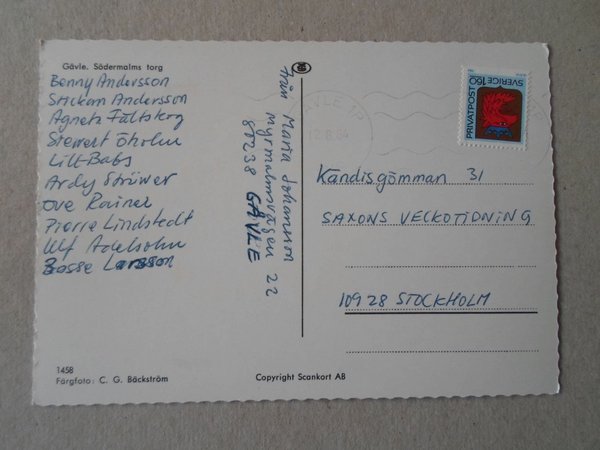 Gävle. Södermalms torg
Benny Andersson
Stickan Andersson
Agneta Fältskog
Stewert Öholm
Lill-Babs
Ardy Strüwer
Ove Rainer
Pierre Lindstedt
Ulf Adelsohn
Bosse Larsson
från Maria Johansson
Myrmalmsvägen 22
80238 GÄVLE
GÄVLE 1P
12.8.84
PRIVATPOST
SVERIGE 160
Kändisgömman 31
SAXONS VECKOTIDNING
109 28 STOCKHOLM
1458
Färgfoto: C. G. Bäckström
Copyright Scankort AB